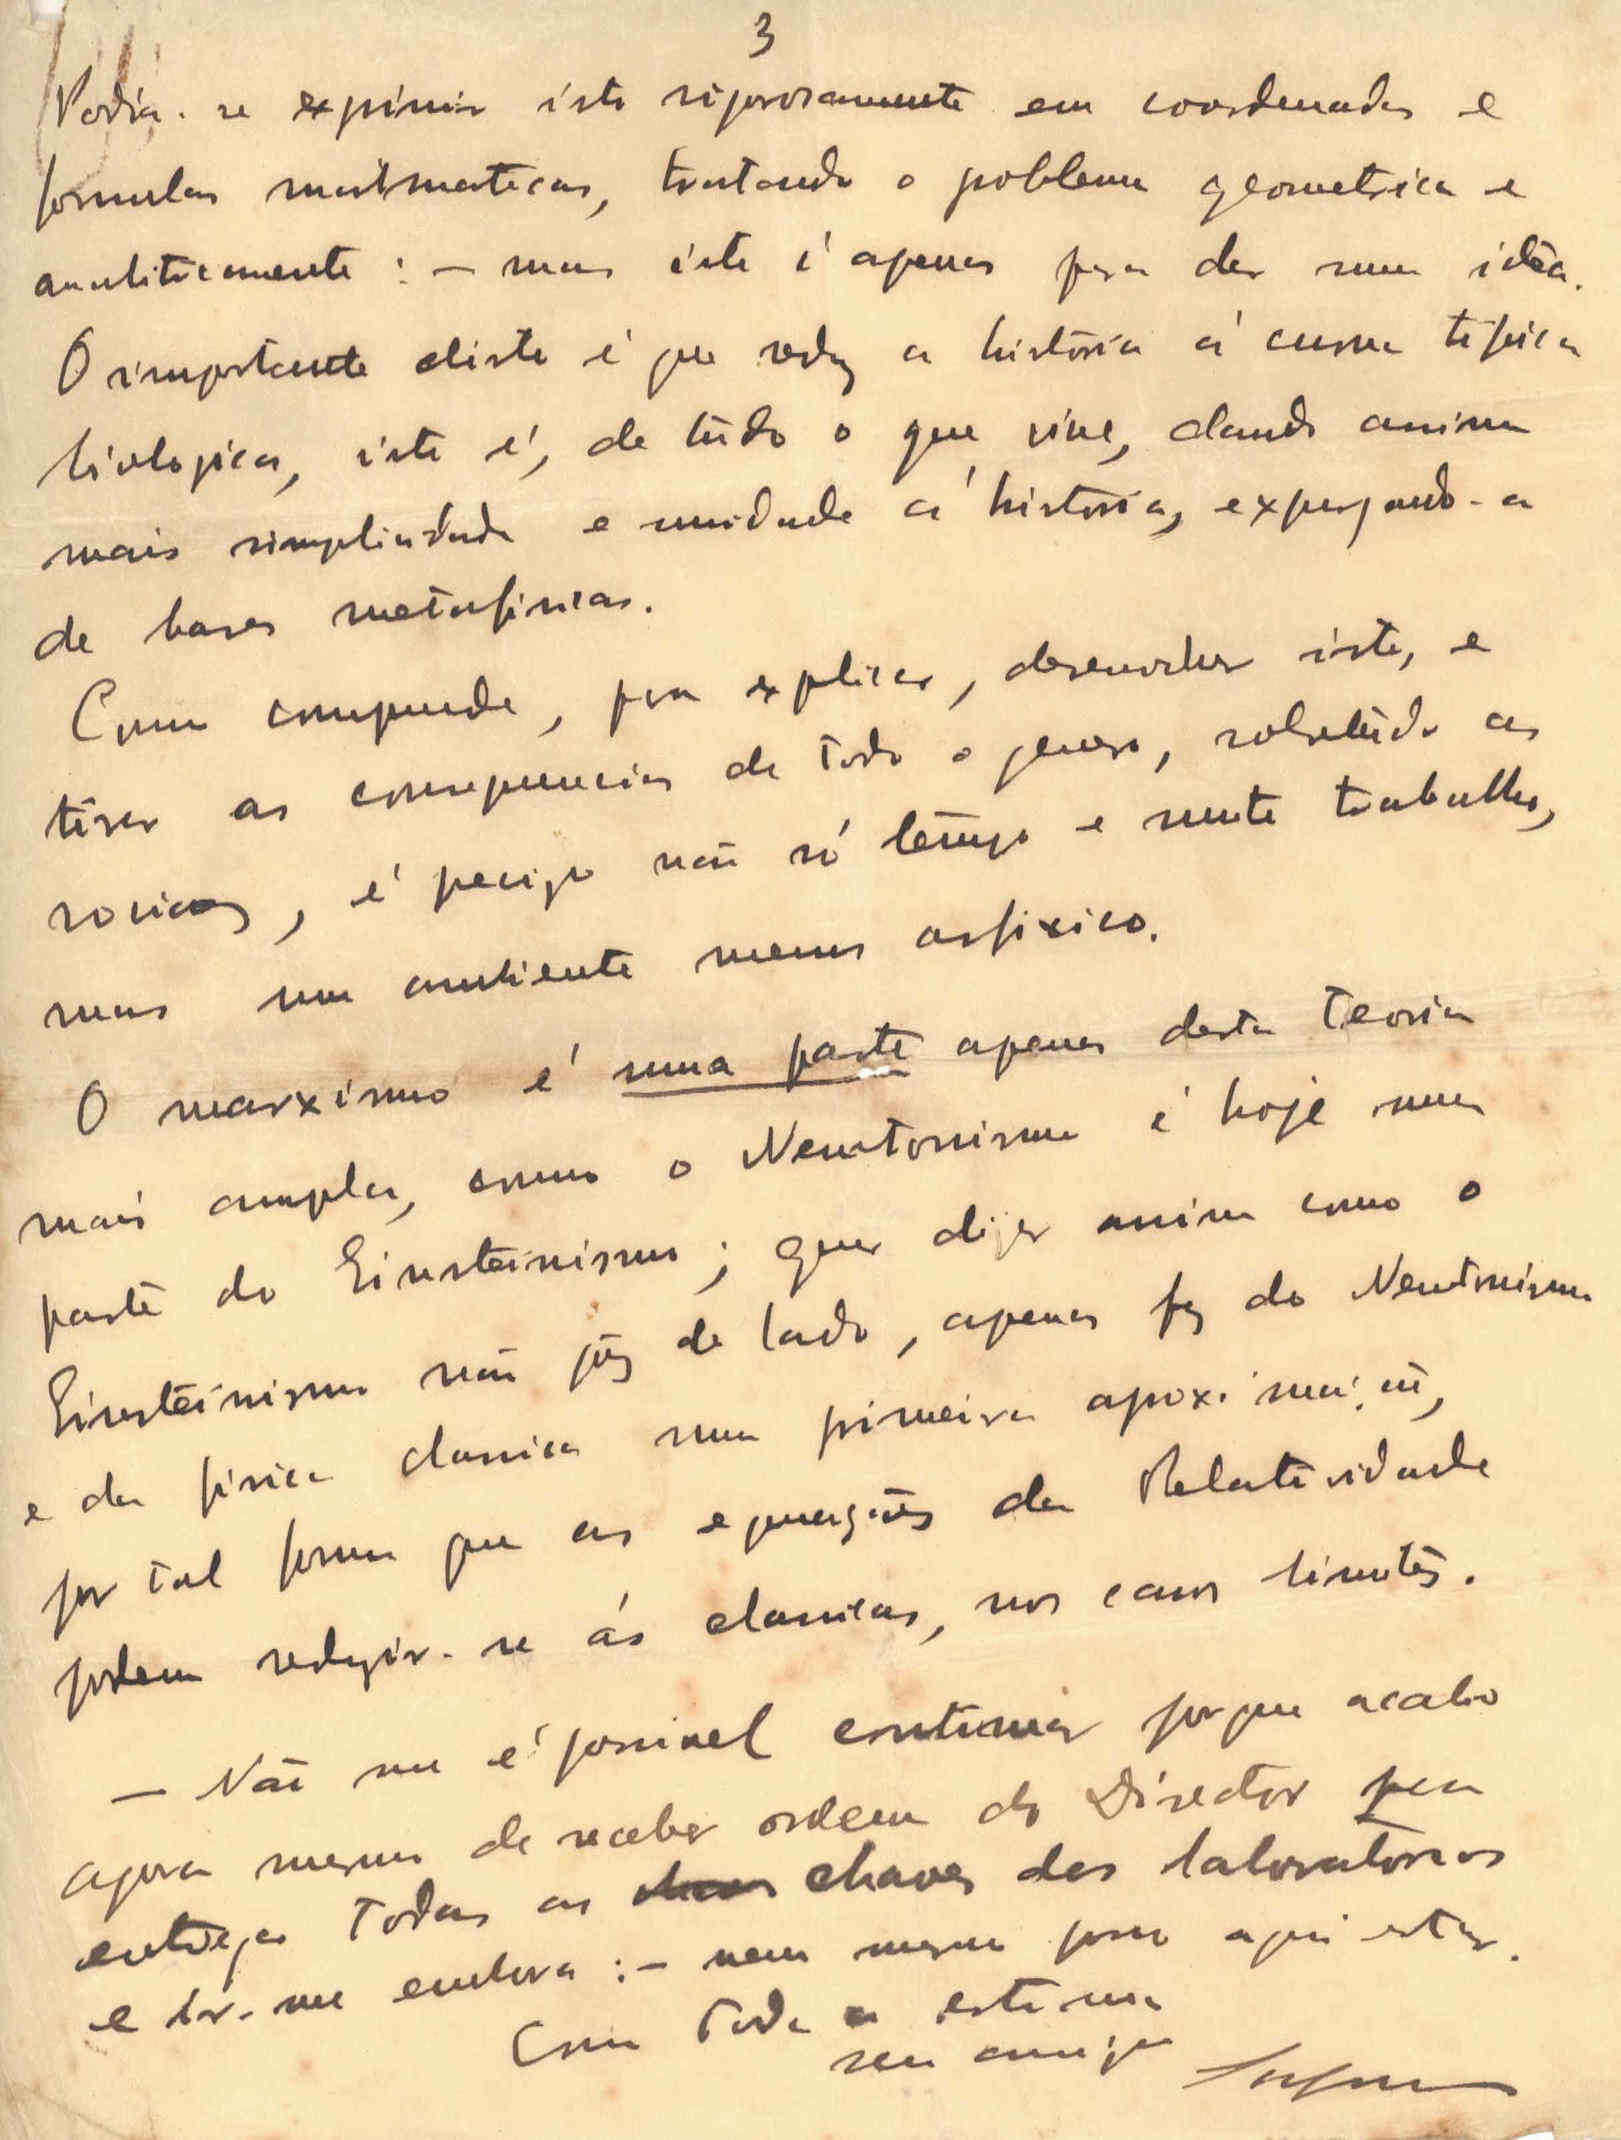 3
Podia-se exprimir isto rigorosamente em coordenadas e
formulas matematicas, tratando o problema geometrica e
analiticamente : — mas isto é apenas para dar uma idêa.
O importante disto é que reduz a história á curva tipica
biologica, isto é, de tudo o que vive, dando assim
mais simplicidade e unidade á história, expurgando-a
de bases metafisicas.
Como compreende, para explicar, desenvolver isto, e
tirar as consequencias de todo o genero, sobretudo as
sociaes, é preciso não só tempo e muito trabalho,
mas um ambiente menos asfixico.
O marxismo é uma parte apenas desta teoria
mais ampla, como o Newtonismo é hoje uma
parte do Einsteinismo ; quer dizer assim como o
Einsteinismo não pôz de lado, apenas fez do Newtonismo
e da fisica classica uma primeira aproximação,
por tal forma que as equações da Relatividade
podem reduzir-se ás classicas, nos casos limites.
— Não me é possivel continuar porque acabo
agora mesmo de receber ordem do Director para
entregar todas as chaves dos laboratorios
e ir-me embora : — nem mesmo posso aqui estar.
Com toda a estima
seu amigo